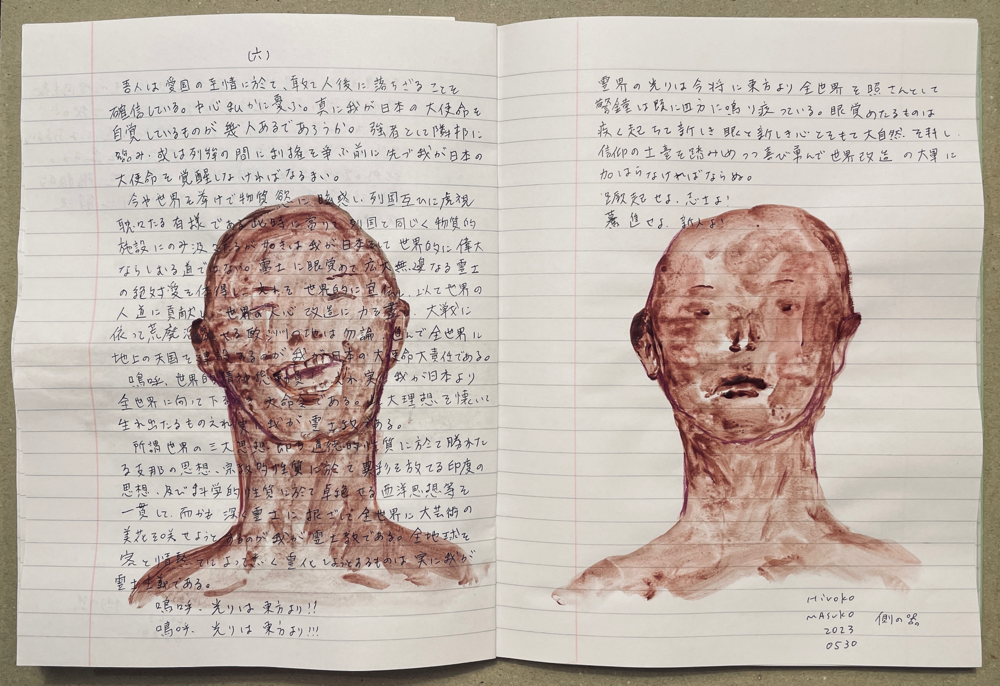 (六)
吾人は愛国の至情に於て、敢て人後に落ちざることを
確信している。中心私かに憂ふ。真に我が日本の大使命を
自覚しているものが幾人あるであろうか。強者として隣邦に
臨み、或は列強の間に利権を争ふ前に先づ我が日本の
大使命を覚醒しなければなるまい。
今や世界を挙げて物質慾に眩惑し、列国互ひに虎視
眈々たる有様である。此時に当りて列国と同じく物質的
施設にのみ汲々たるが如きは我が日本をして世界的に偉大
ならしむる道ではない。霊士に眼覚めて広大無辺なる霊士
の絶対愛を体得し、これを世界的に宣伝し、以て世界の
人道に貢献し、世界の人心改造に力を 大戦に
依って荒廃 せる欧洲の地は勿論、進んで全世界に
地上の天国を建設するのが我が日本の大使命大責任である。
嗚呼、世界的精神的 これ実に我が日本より
全世界に向って下る 大命令である。 大理想を懐いて
生れ出たるものこれ実に我が霊士教である。
所謂世界の三大思想即ち道徳的性質に於て勝れた
る支那の思想、宗教的性質に於て異彩を放てる印度の
思想、及び科学的性質に於て卓絶せる西洋思想等を
一貫して、而かも深く霊士に根ざして全世界に大芸術の
美花を咲せようとするのが我が霊士教である。全地球を
愛と情熱 によって 霊化しようとするものは実に我が
霊士主義である。
嗚呼、光りは東方より!!
嗚呼、光りは東方より!!!
霊界の光りは今将に東方より全世界を照さんとして
警鐘は既に四方に鳴り渡っている。眼覚めたるものは
疾く起ちて新しき眼と新しき心とをもて大自然を拝し、
信仰の土台を踏みしめつつ喜び勇んで世界改造の大業に
加はらなければならぬ。
蹶起せよ、志士よ!
驀進せよ、 よ!
Hiroko
MASUKO
2023 側の器
0530